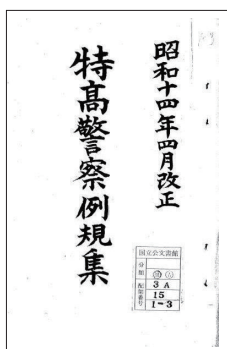 昭和十四年四月改正
特高警察例規集
国立公文書館
分類
配架番号
3A
15
1-3